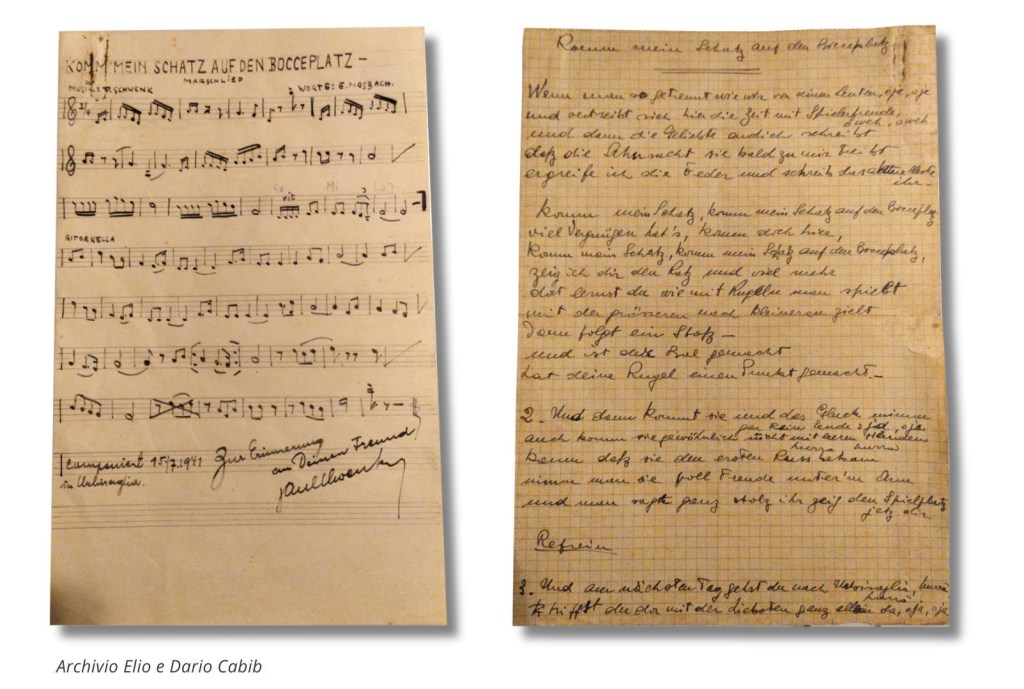 KOMM MEIN SCHATZ AUF DEN BOCCEPLATZ –
MARSCHLIED
MUSIK: P. SCHWENK WORTE: E. MOSBACH.
2/4
Re Mi
rit 3
RITORNELLA
Componiert 15/7.1941
in Urbisaglia.
Zur Erinnerung
an Deinen Freund
Komm mein Schatz auf den Bocceplatz
Wenn man so getrennt wie wir von seinen Leuten, oja, oja
und vertreibt sich hie die Zeit mit Spielerfreude,
o weh, o weh
und dann die Geliebte an dich schreibt
daß die Sehnsucht sie bald zu mir treibt
ergreife ich die Feder und schreib
ihr –
Komm mein Schatz, komm mein Schatz auf den Bocceplatz
viel Vergnügen hat's, komm doch hier,
Komm mein Schatz, komm mein Schatz auf den Bocceplatz,
zeig ich dir den und viel mehr
dort lernst du wie mit Kugeln man spielt
mit der grösseren nach kleineren zielt
Dann folgt ein Stoß –
und ist dein gemacht
hat deine Kugel einen Punkt gemacht –
2. Und dann kommt sie und das Glück nimmt
gar kein Ende oja, oja
auch komm sie gewöhnlich nicht mit leeren Händen
hurra hurra
kaum daß sie den ersten Kuss bekam
nimm man sie voll Freude unter'm Arm
und man sagt ganz stolz ihr zeig den Spielplatz
jetz dir
Refrein
3. Und am nächsten Tag gehst du nach hurra
hurra
triffst du dir mit der ganz allein da, oja, oja